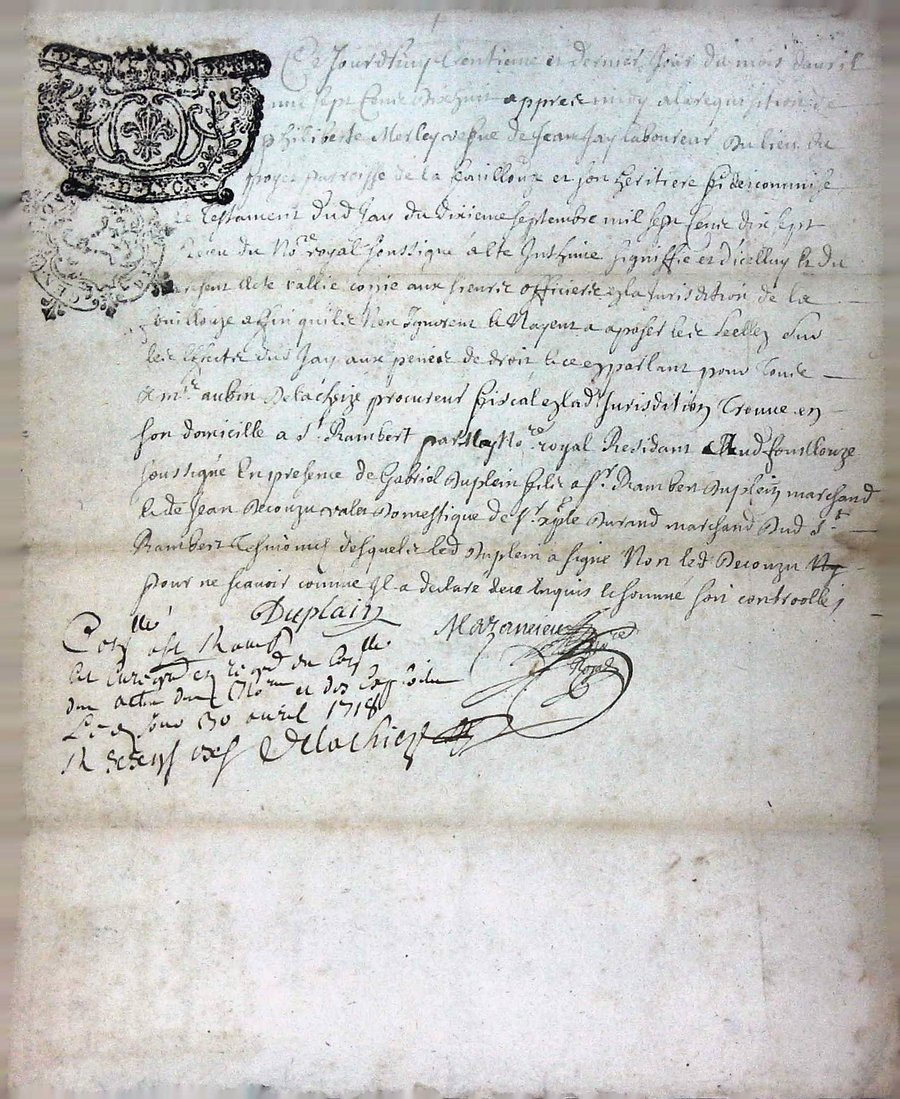 D LYON
Ce Jourdhuy trentieme et dernier Jour du mois davril
mil sept Cent dixhuit appres midy a la requisition de
philiberte Merley vefve de Jean Jay laboureur du lieu du
parroisse de la feuillouze et son heritiere fideicommise
testament dud Jay du dixieme septembre mil sept cent dix sept
Receu du No.re royal soussigné a esté Inthimé signiffié et dicelluy et du
present acte baillé copie aux sieurs officiers en la Jurisdition de la
fouillouze affin quils nen ignorent et nayent a aposer les seellez sur
les effects dud Jay aux peines de droit et ce en parlant pour tous
a m.re aubin Delachèze procureur fiscal en lad Jurisdition trouvé en
son domicille a S.t Rambert par moy No.re royal Residant aud fouillouze
soussigné En presence de Gabriel Duplein fils a S.r Rambert Duplein marchand
et de Jean Decouzu valet domestique de S.r Durand marchand dud S.t
Rambert tesmoins desquels led Duplein a signé Non led Decouzu
pour ne scavoir comme Il a declaré de ce enquis et sommé soit controollé
Duplain
Mazancieu
No.re Royal
Con.llé a S.t Ramb.
et
des actes des et des
Led Jour 30 avril 1718
R Delachieze